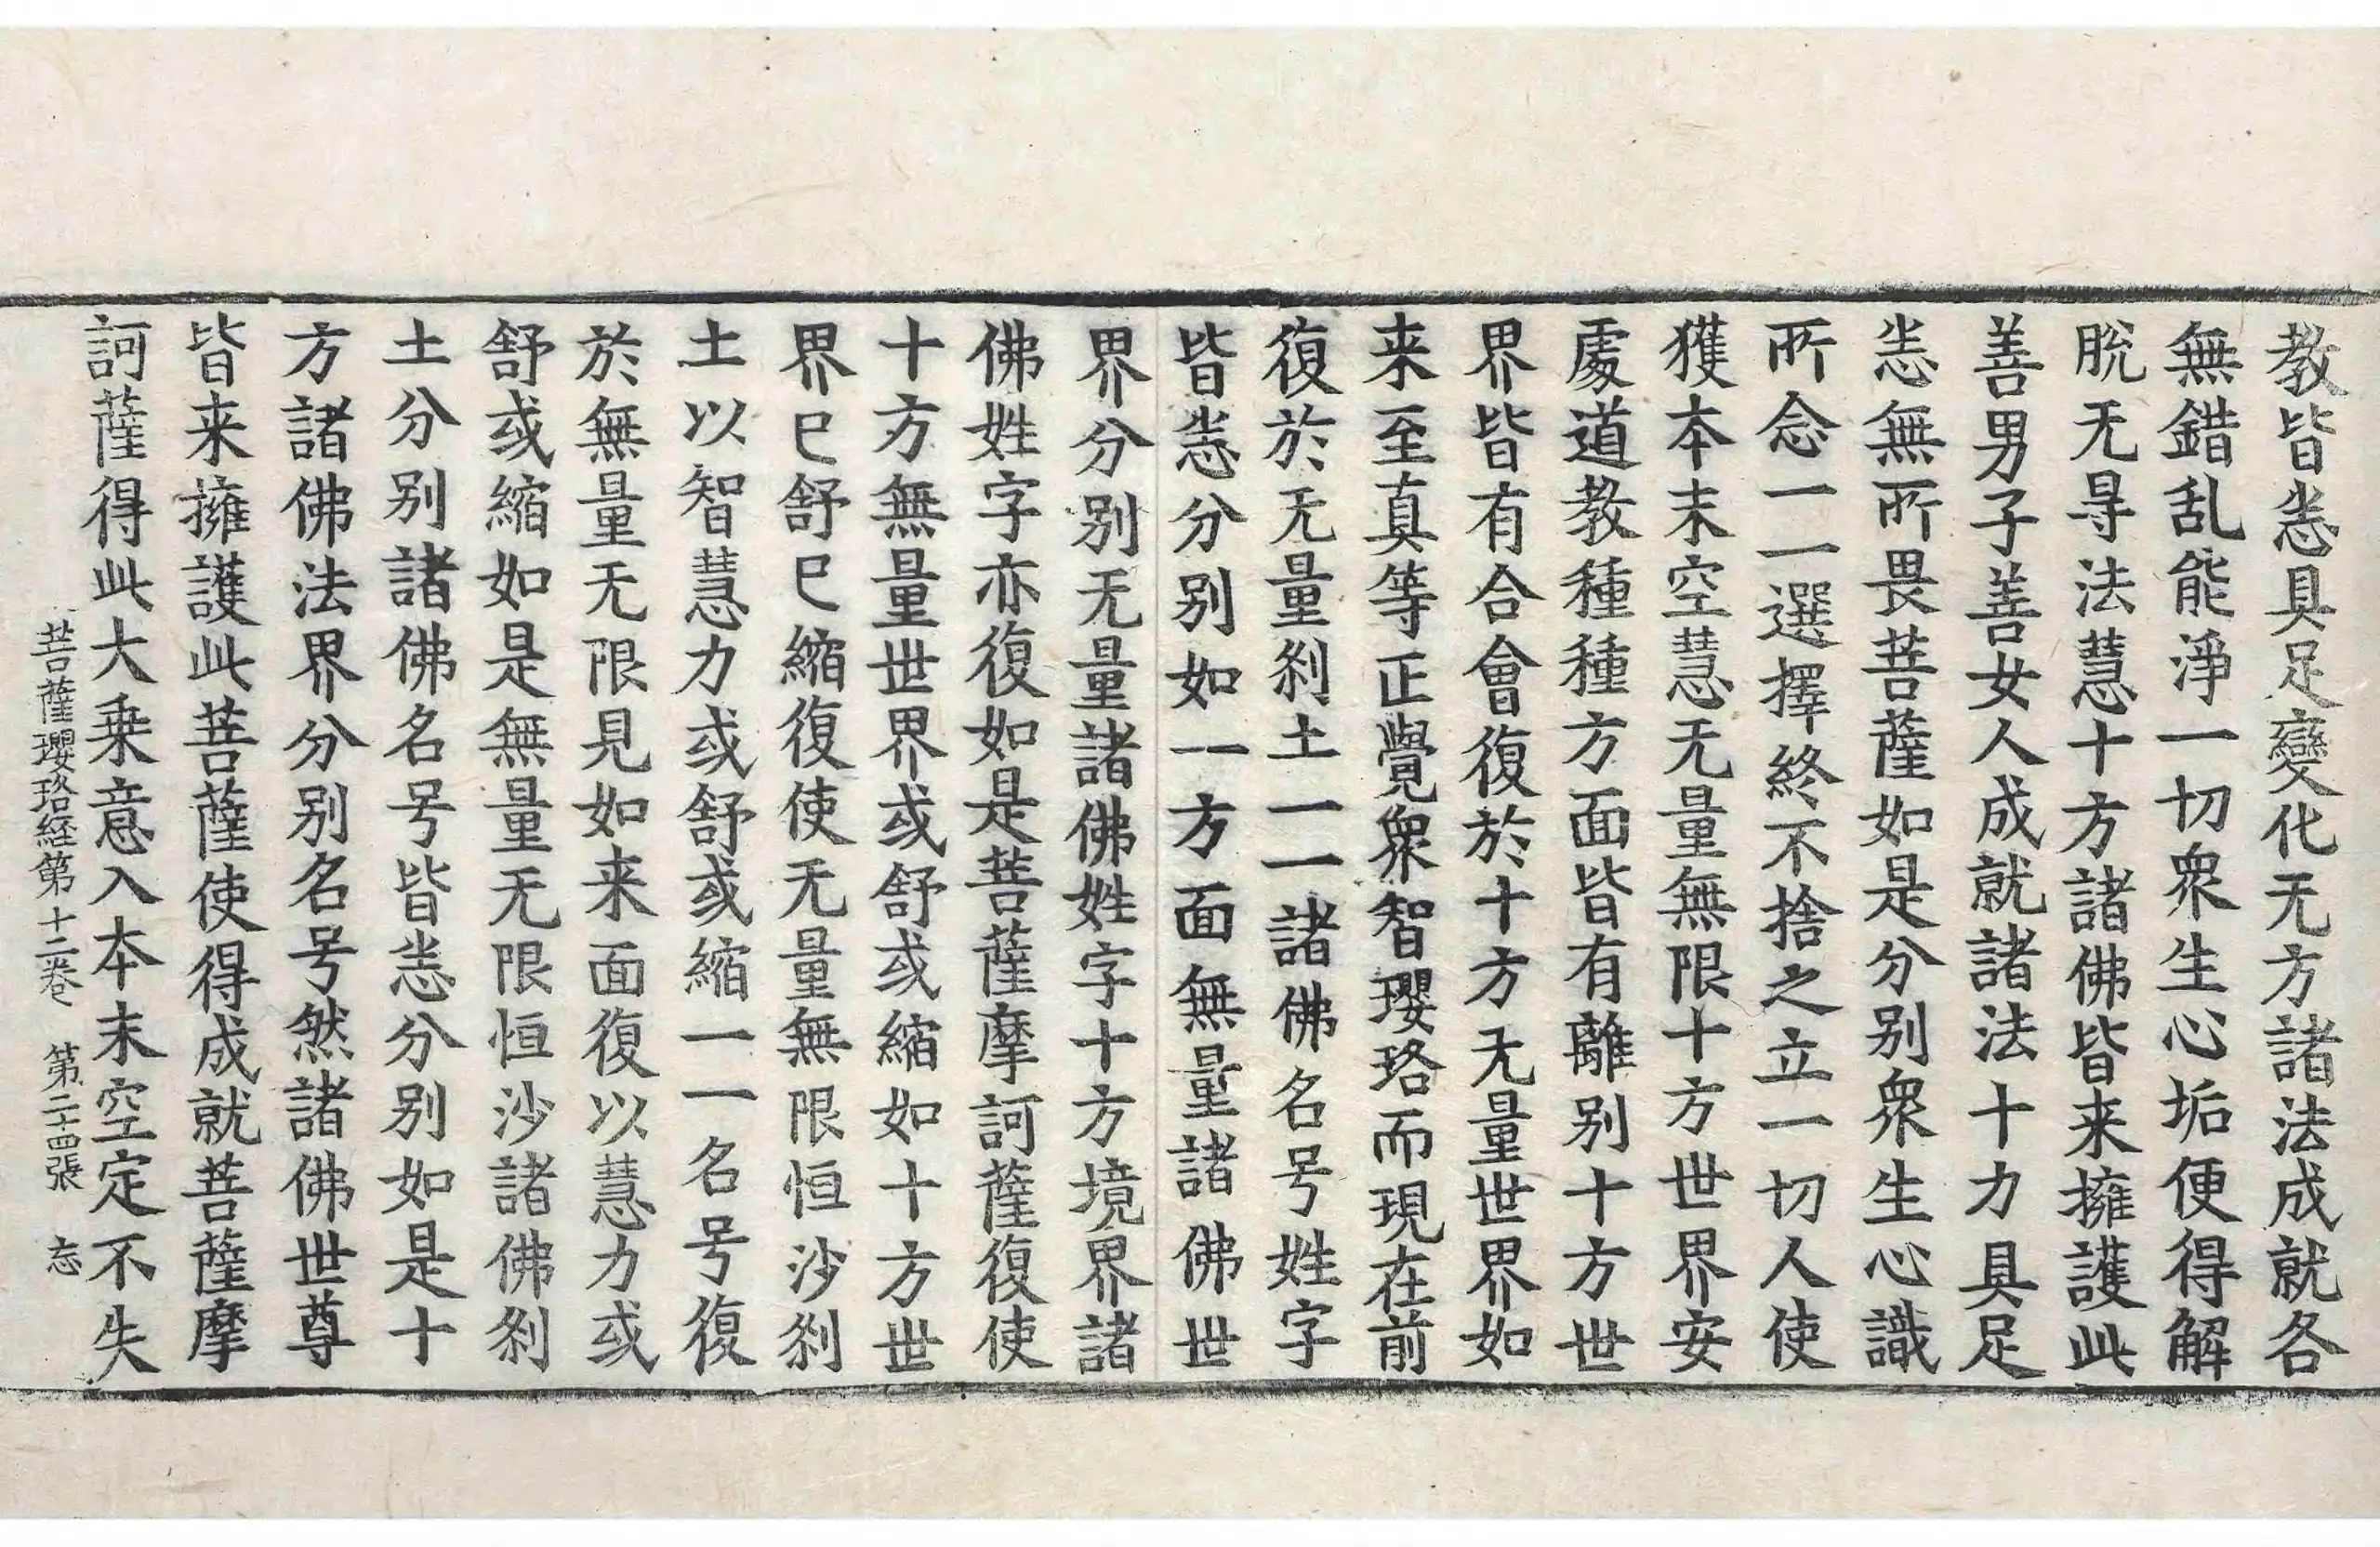 教皆悉具足變化无方諸法成就各
無錯乱能淨一切衆生心垢便得解
脫无㝵法慧十方諸佛皆来擁護此
善男子善女人成就諸法十力具足
悉無所畏菩薩如是分别衆生心識
所念一一選擇終不捨之立一切人使
獲本末空慧无量無限十方世界安
處道教種種方面皆有離别十方世
界皆有合會復於十方无量世界如
来至真等正覺衆智瓔珞而現在前
復於无量刹土一一諸佛名号姓字
皆悉分别如一方面無量諸佛世
界分别无量諸佛姓字十方境界諸
佛姓字亦復如是菩薩摩訶薩復使
十方無量世界或舒或縮如十方世
界巳舒巳縮復使无量無限恒沙刹
土以智慧力或舒或縮一一名号復
於無量无限見如来面復以慧力或
舒或縮如是無量无限恒沙諸佛刹
土分别諸佛名号皆悉分别如是十
方諸佛法界分别名号然諸佛世尊
皆来擁護此菩薩使得成就菩薩摩
訶薩得此大乗意入本末空定不失
菩薩瓔珞経第十二卷 第二十四張 忘